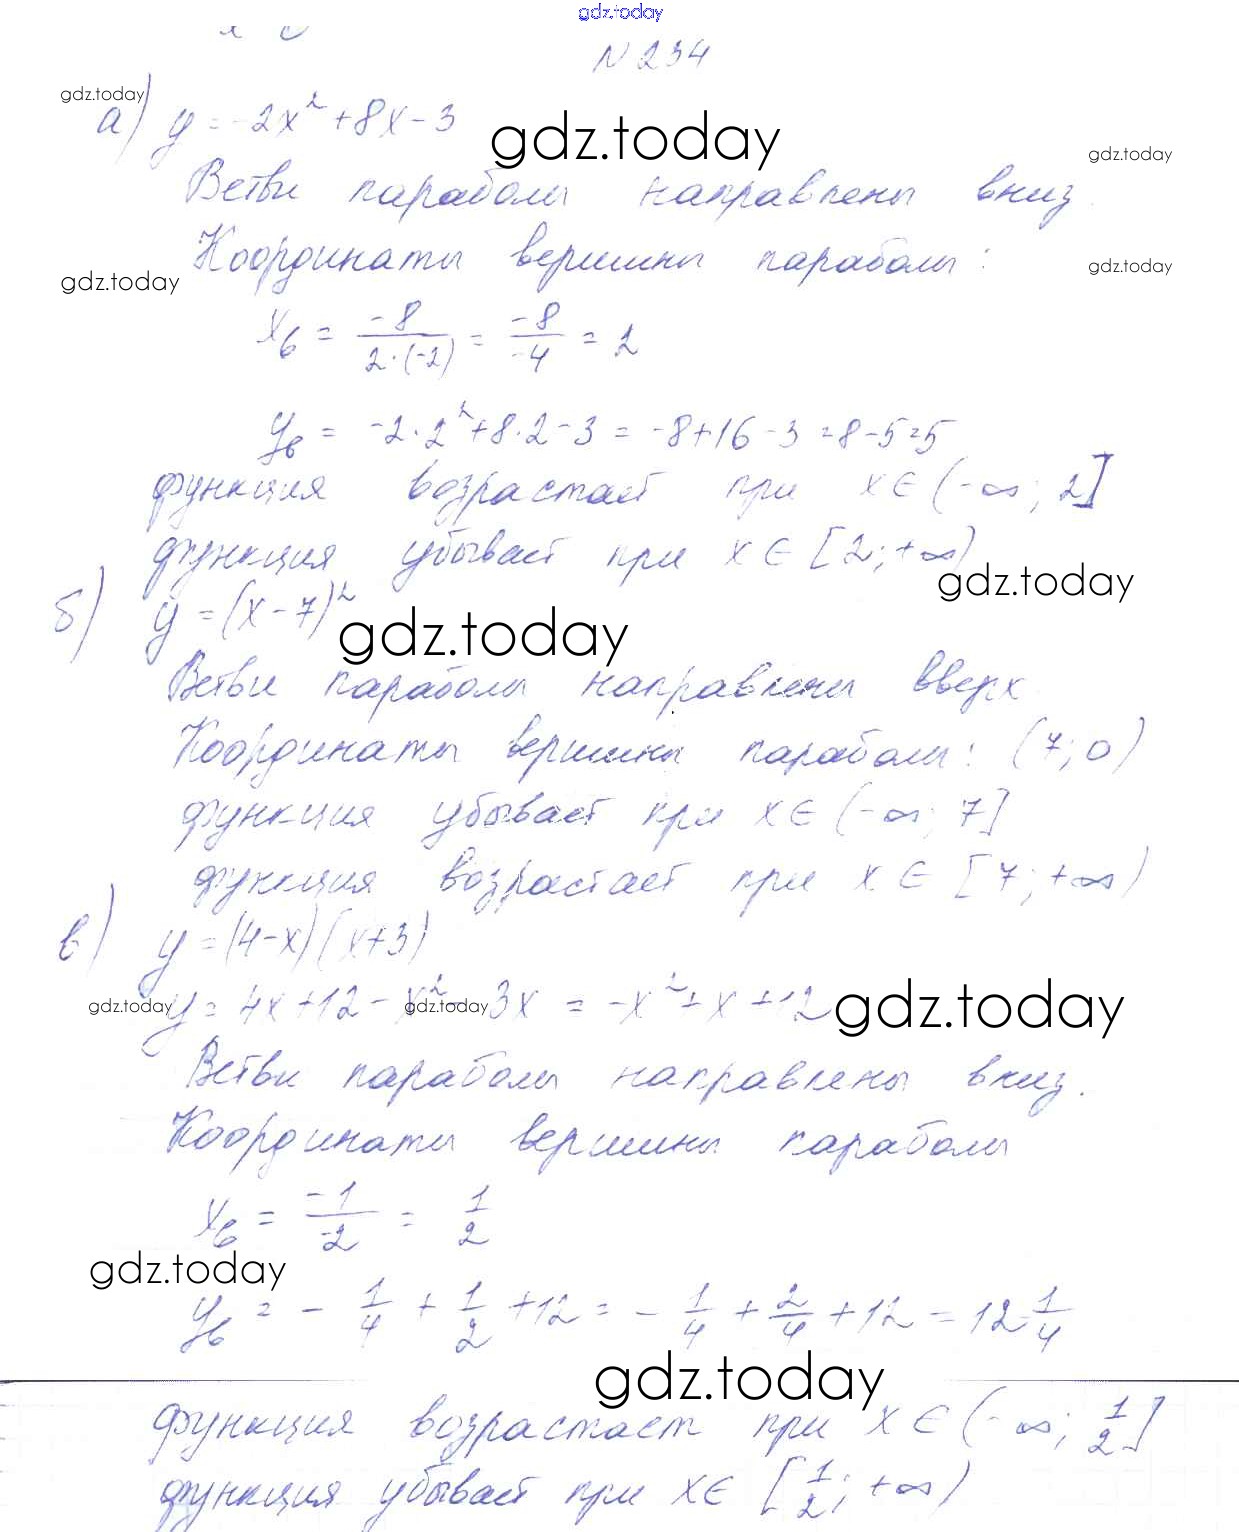 gdz.today
N 234
gdz.today
а) y = -2x² + 8x - 3
gdz.today
gdz.today
Ветви параболы направлены вниз.
Координаты вершины параболы:
gdz.today
gdz.today
xв = -8/(2·(-2)) = -8/-4 = 2
yв = -2·2² + 8·2 - 3 = -8+16-3 = 8-5=5
функция возрастает при x ∈ (-∞; 2]
функция убывает при x ∈ [2; +∞)
gdz.today
б) y = (x - 7)²
gdz.today
Ветви параболы направлены вверх
Координаты вершины параболы: (7; 0)
функция убывает при x ∈ (-∞; 7]
функция возрастает при x ∈ [7; +∞)
в) y = (4-x)(x+3)
y = 4x + 12 - x² - 3x = -x² + x + 12
gdz.today
gdz.today
gdz.today
Ветви параболы направлены вниз.
Координаты вершины параболы
xв = -1/-2 = 1/2
gdz.today
yв = - 1/4 + 1/2 + 12 = - 1/4 + 2/4 + 12 = 12 1/4
gdz.today
функция возрастает при x ∈ (-∞; 1/2]
функция убывает при x ∈ [1/2; +∞)